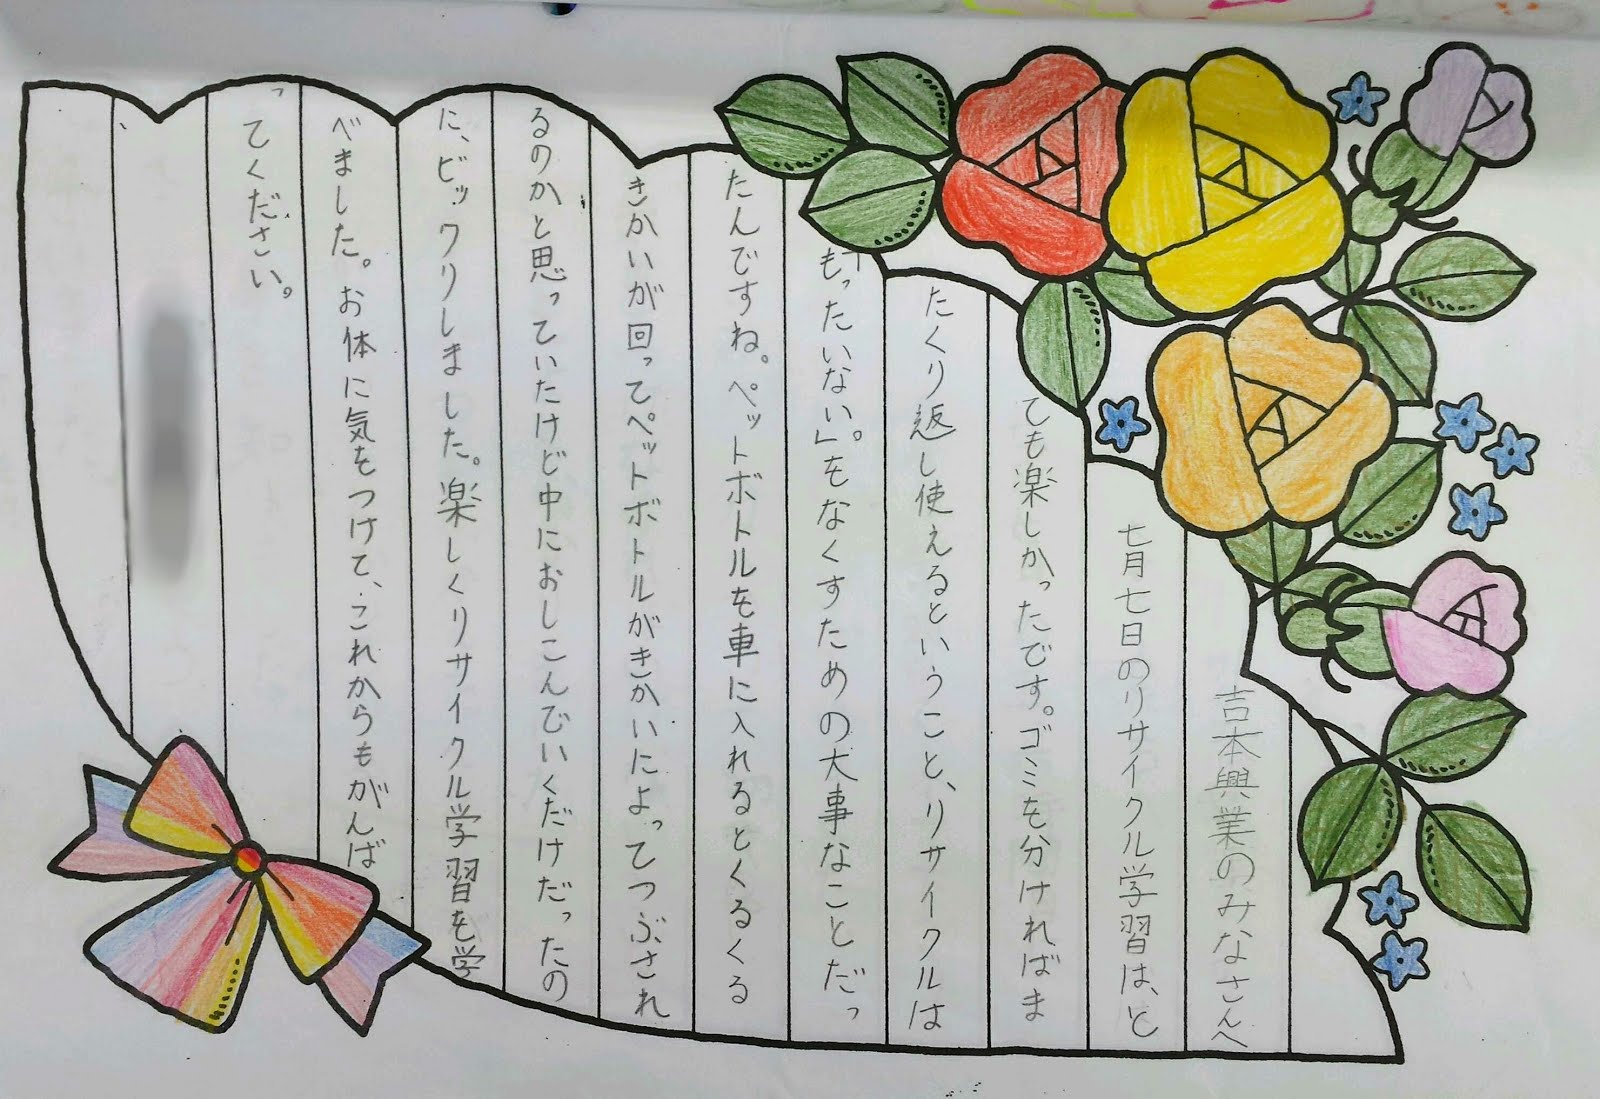 吉本興業のみなさんへ
七月七日のリサイクル学習は、と
ても楽しかったです。ゴミも分ければま
たくり返し使えるということ、リサイクルは
「もったいない」。をなくすための大事なことだっ
たんですね。ペットボトルを車に入れるとくるくる
きかいが回ってペットボトルがきかいによってつぶされ
るのかと思っていたけど中におしこんでいくだけだったの
に、ビックリしました。楽しくリサイクル学習を学
べました。お体に気をつけて、これからもがんば
ってください。